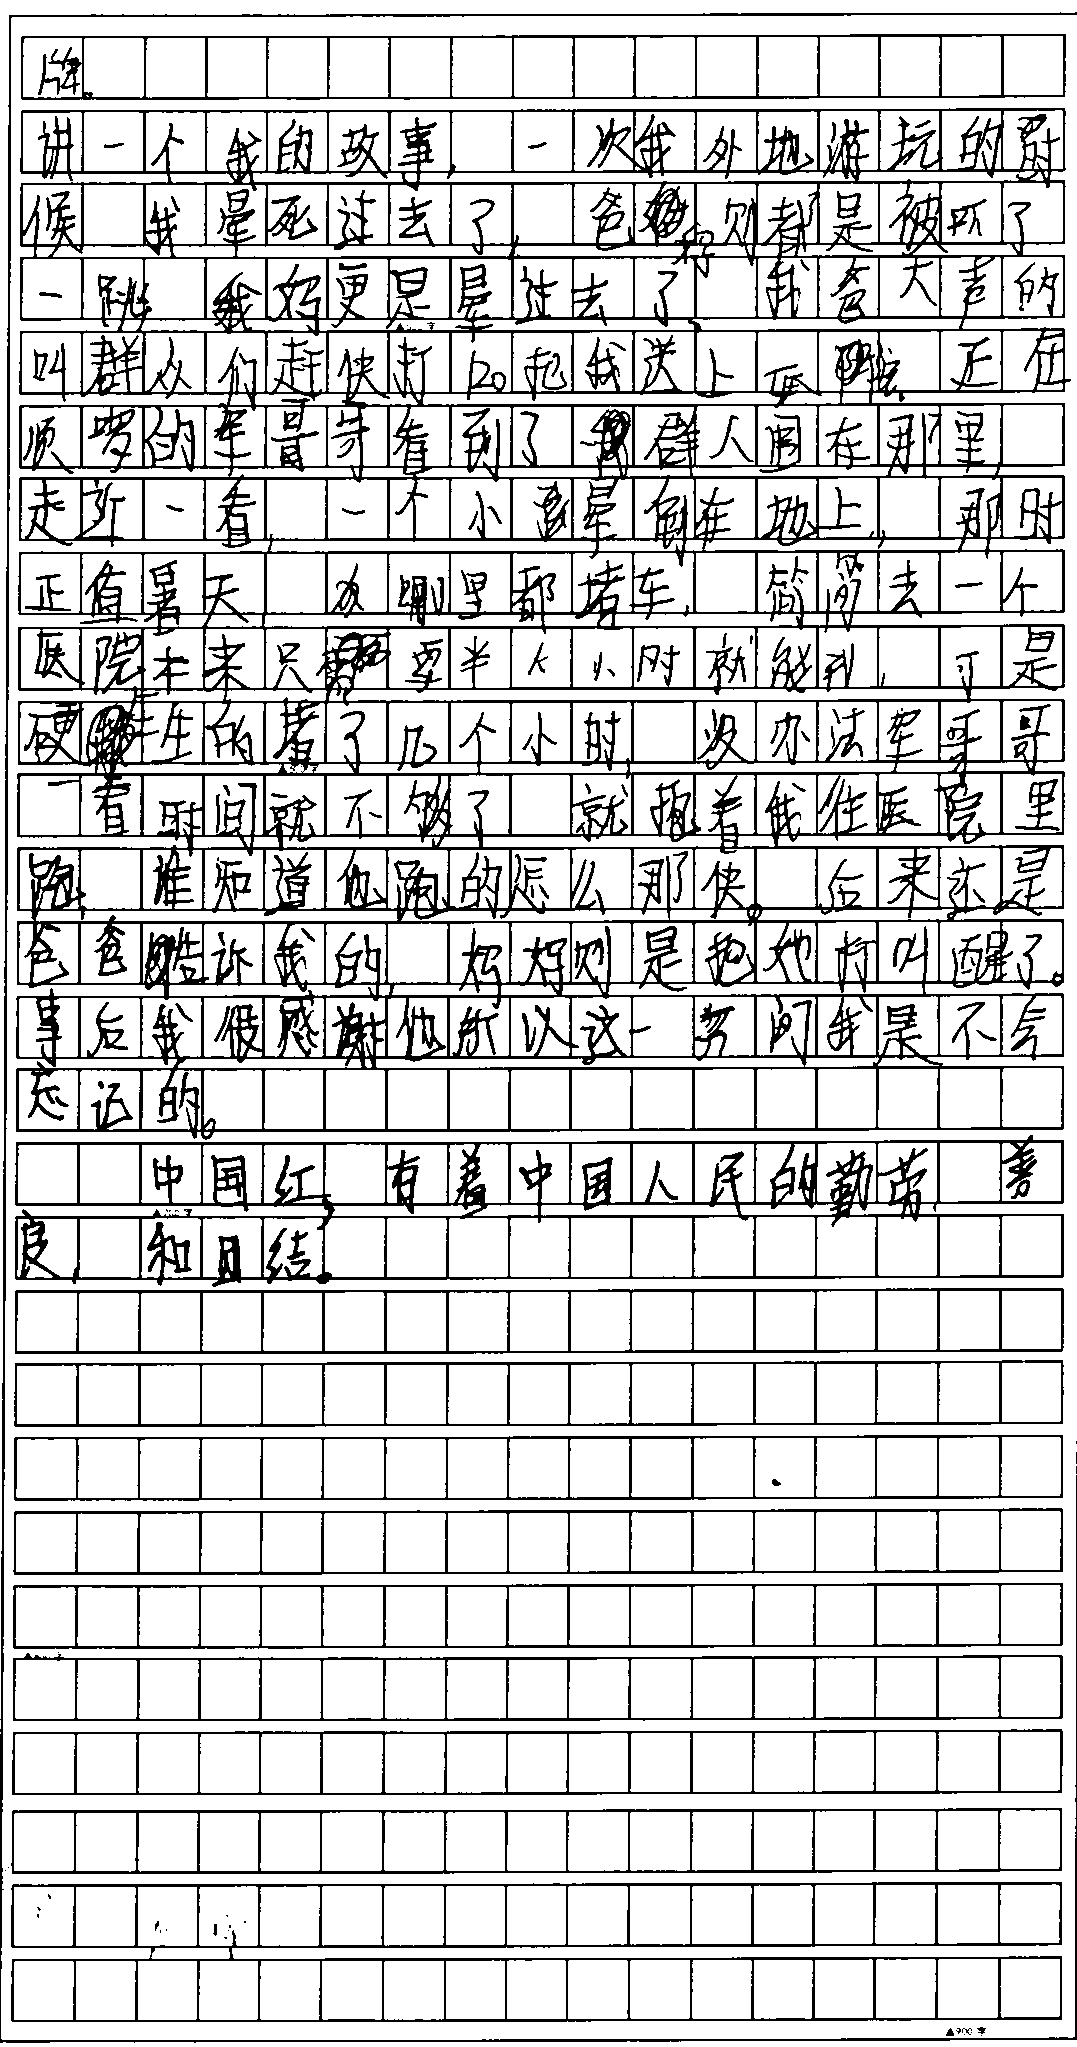 牌。
讲一个我的故事，一次我外地游玩的时
候 我晕死过去了，爸妈则都是被吓了
一跳 我妈更是晕过去了，我爸大声的
叫群众们赶快打120把我送上医院。正在
巡逻的军哥哥看到了 群人围在那里，
走近一看，一个小孩晕倒在地上，那时
正值暑天 哪里都堵车，简简去一个
医院本来只要半个小时就能到，可是
硬生生的堵了几个小时，没办法军哥哥
一看时间就不够了 就抱着我往医院里
跑，谁知道他跑的怎么那快。后来还是
爸爸告诉我的，妈妈则是把她打叫醒了。
事后我很感谢他所以这一 间我是不会
忘记的。
中国红，有着中国人民的勤劳 善
良，和团结。
▲900字